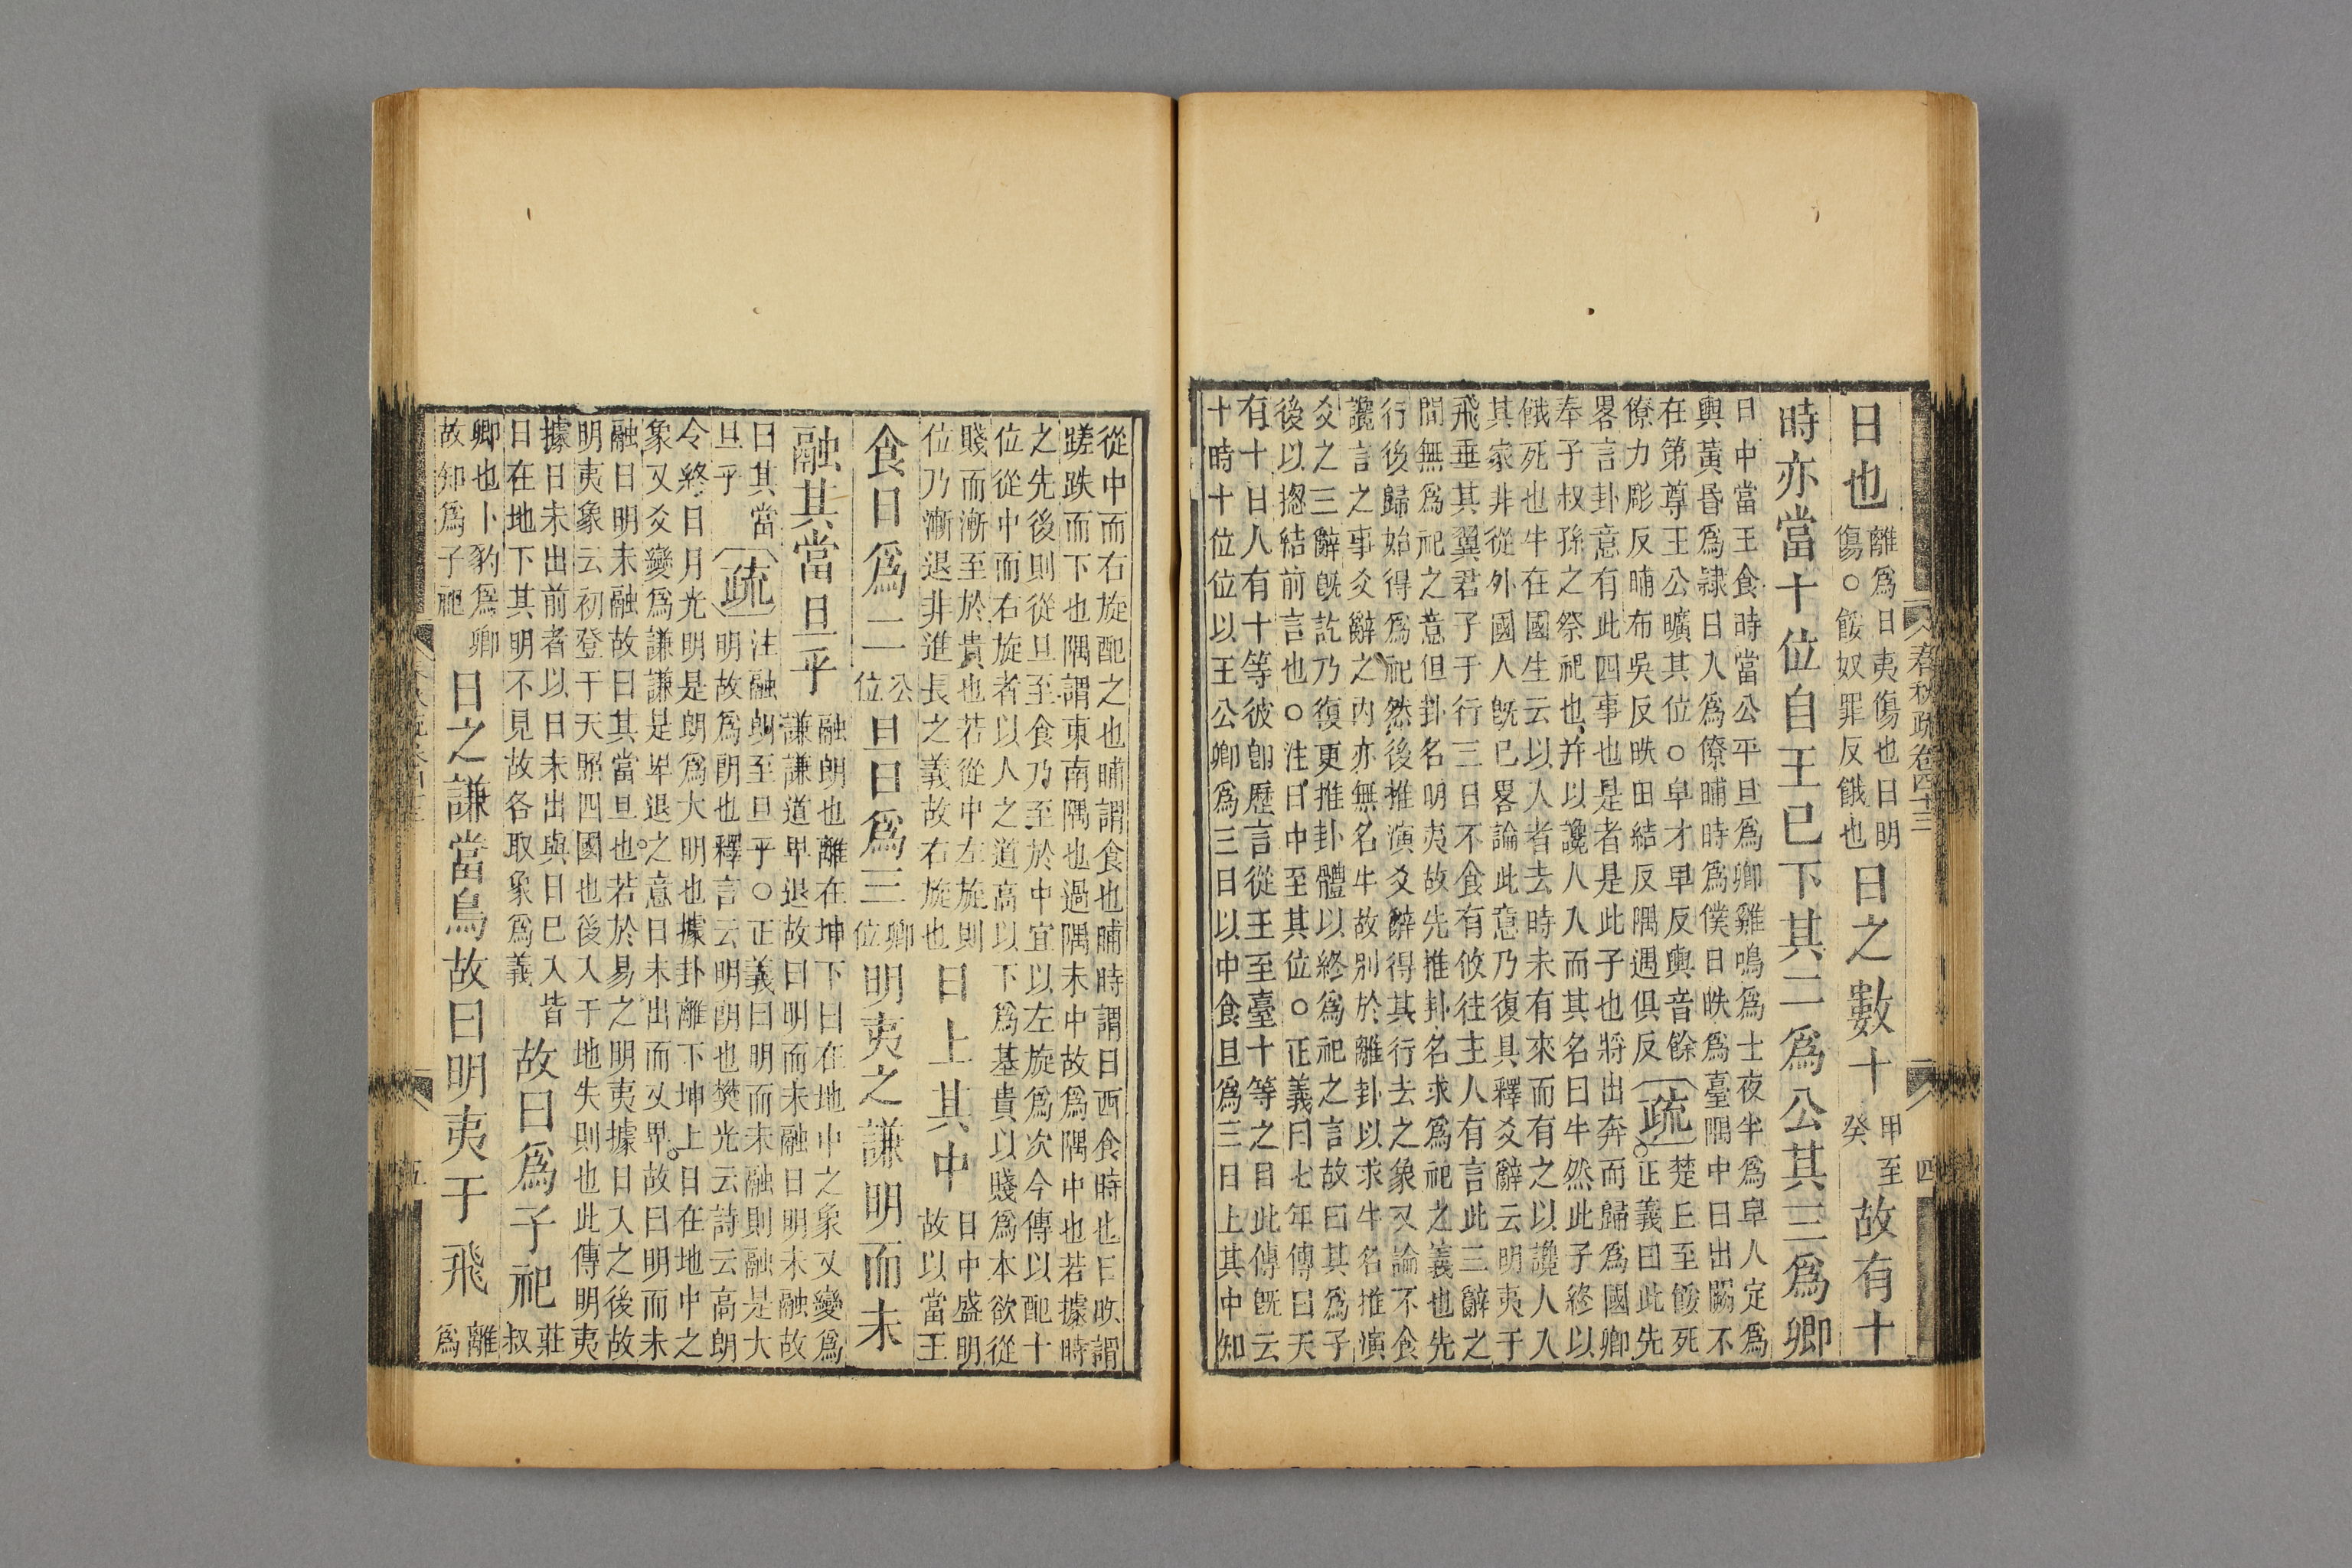 春秋疏卷四十三 四
日也離爲日夷傷也日明
傷○餒奴罪反餓也
日之數十甲至
癸
故有十
時亦當十位自王已下其二爲公其三爲卿
日中當王食時當公平旦爲卿雞鳴爲士夜半爲皁人定爲
輿黃昏爲隸日入爲僚晡時爲僕日昳爲臺隅中日出闕不
在第尊王公曠其位○皁才早反輿音餘
僚力彫反晡布吳反昳田結反隅遇俱反
疏
楚丘至餒死
正義曰此先
畧言卦意有此四事也是者是此子也將出奔而歸爲國卿
奉子叔孫之祭祀也并以讒人人而其名曰牛然此子終以
餓死也牛在國生云以人者去時未有來而有之以讒人入
其家非從外國人既已畧論此意乃復具釋爻辭云明夷于
飛垂其翼君子于行三日不食有攸往主人有言此三辭之
間無爲祀之意但卦名明夷故先推卦名求爲祀之義也先
行後歸始得爲祀然後推演爻辭得其行去之象又論不食
讒言之事爻辭之內亦無名牛故別於離卦以求牛名推演
爻之三辭既訖乃復更推卦體以終爲祀之言故曰其爲子
後以揔結前言也○注日中至其位○正義曰七年傳曰天
有十日人有十等彼卽歷言從王至臺十等之目此傳既云
十時十位位以王公卿爲三日以中食旦爲三日上其中知
從中而右旋配之也晡謂食也晡時謂日西食時也日昳謂
蹉跌而下也隅謂東南隅也過隅未中故爲隅中也若據時
之先後則從旦至食乃至於中宜以左旋爲次今傳以配十
位從中而右旋者以人之道高以下爲基貴以賤爲本欲從
賤而漸至於貴也若從中左旋則
位乃漸退非進長之義故右旋也
日上其中
日中盛明
故以當王
食日爲二公
位
旦日爲三卿
位
明夷之謙明而未
融其當旦乎
融朗也離在坤下日在地中之象又變爲
謙謙道卑退故曰明而未融日明未融故
曰其當
旦乎
疏
注融朗至旦乎○正義曰明而未融則融是大
明故爲朗也釋言云明朗也樊光云詩云高朗
令終日月光明是朗爲大明也據卦離下坤上日在地中之
象又爻變爲謙謙是卑退之意日未出而又卑故曰明而未
融日明未融故曰其當旦也若於易之明夷據日入之後故
明夷象云初登于天照四國也後入于地失則也此傳明夷
據日未出前者以日未出與日已入皆
日在地下其明不見故各取象爲義
故曰爲子祀
莊
叔
卿也卜豹爲卿
故知爲子祀
日之謙當鳥故曰明夷于飛
離
爲
五